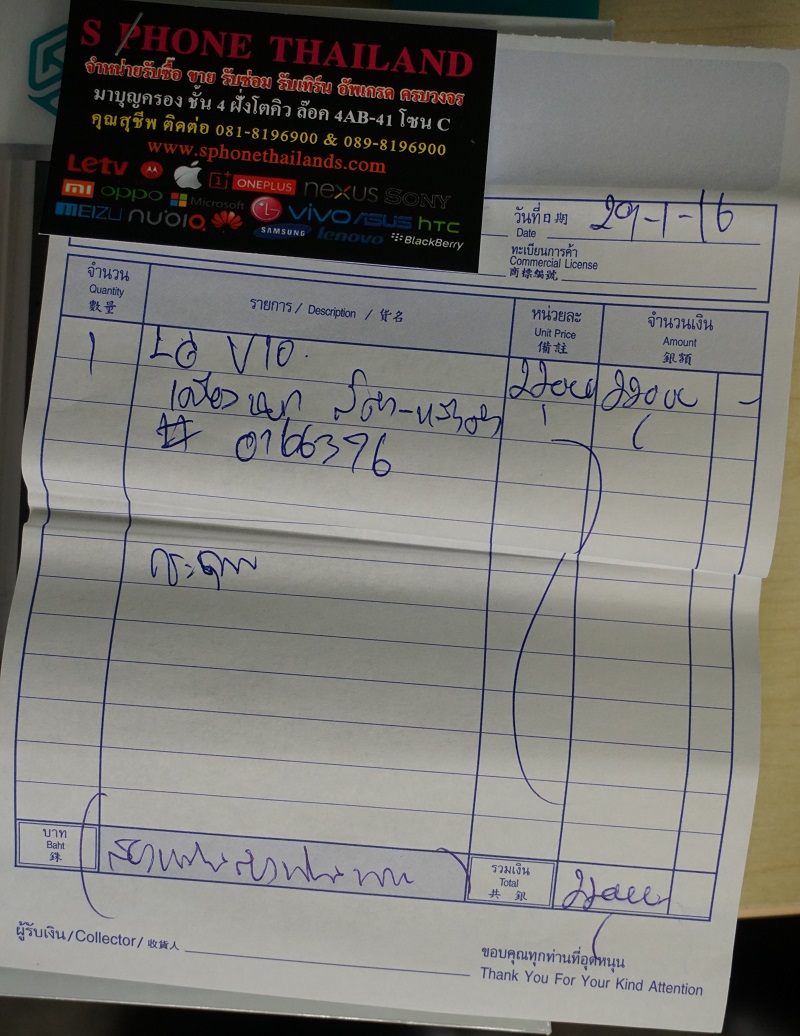 S PHONE THAILAND
จำหน่ายรับซื้อ ขาย รับซ่อม รับเทิร์น อัพเกรด ครบวงจร
มาบุญครอง ชั้น 4 ฝั่งโตคิว ล๊อค 4AB-41 โซน C
คุณสุชีพ ติดต่อ 081-8196900 & 089-8196900
www.sphonethailands.com
Letv 1+ ONEPLUS nexus SONY
mi oppo Microsoft LG vivo ASUS hTC
MEIZU nubia SAMSUNG lenovo BlackBerry
วันที่ 日期 29-1-16
Date
ทะเบียนการค้า
Commercial License
商標編號
จำนวน
Quantity
數量
รายการ / Description / 货名
หน่วยละ
Unit Price
備註
จำนวนเงิน
Amount
銀額
1 LG V10 22000 22000 -
# 0166376
บาท
Baht
銖
รวมเงิน
Total
共 銀
22000
ผู้รับเงิน/Collector/ 收貨人
ขอบคุณทุกท่านที่อุดหนุน
Thank You For Your Kind Attention